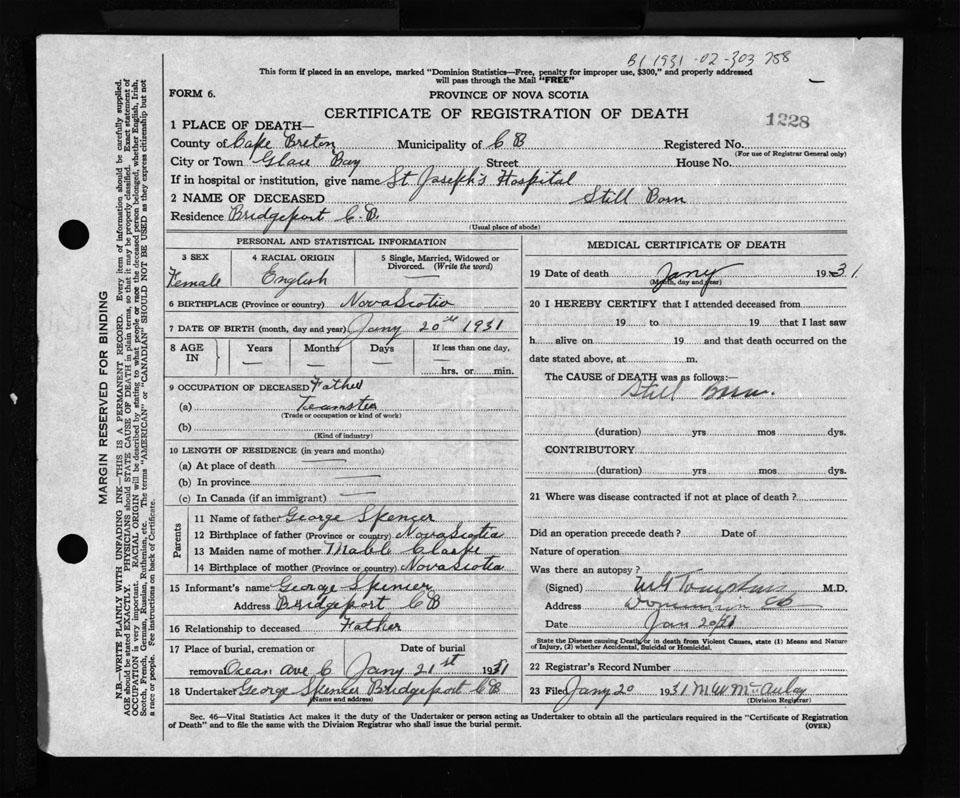 B1 1931-02-303 758
This form if placed in an envelope, marked "Dominion Statistics—Free, penalty for improper use, $300," and properly addressed
will pass through the Mail "FREE"
FORM 6.
PROVINCE OF NOVA SCOTIA
CERTIFICATE OF REGISTRATION OF DEATH
1228
1 PLACE OF DEATH—
County of Cape Breton Municipality of C B Registered No.
(For use of Registrar General only)
City or Town Glace Bay Street House No.
If in hospital or institution, give name St Joseph's Hospital
2 NAME OF DECEASED Still Born
Residence Bridgeport C.B.
(Usual place of abode)
PERSONAL AND STATISTICAL INFORMATION
3 SEX 4 RACIAL ORIGIN 5 Single, Married, Widowed or
Divorced. (Write the word)
Female English —
6 BIRTHPLACE (Province or country) Nova Scotia
7 DATE OF BIRTH (month, day and year) Jany 20th 1931
8 AGE IN Years Months Days If less than one day,
— — — —
hrs. or min.
9 OCCUPATION OF DECEASED Father
(a) Teamster
(Trade or occupation or kind of work)
(b)
(Kind of industry)
10 LENGTH OF RESIDENCE (in years and months)
(a) At place of death —
(b) In province —
(c) In Canada (if an immigrant) —
Parents
11 Name of father George Spencer
12 Birthplace of father (Province or country) Nova Scotia
13 Maiden name of mother Mable Clarke
14 Birthplace of mother (Province or country) Nova Scotia
15 Informant's name George Spencer
Address Bridgeport C B
16 Relationship to deceased Father
17 Place of burial, cremation or Date of burial
removal Ocean Ave C Jany 21st 1931
18 Undertaker George Spencer Bridgeport C B
(Name and address)
MEDICAL CERTIFICATE OF DEATH
19 Date of death Jany 1931
(Month, day and year)
20 I HEREBY CERTIFY that I attended deceased from
19 to 19 that I last saw
h alive on 19 and that death occurred on the
date stated above, at m.
The CAUSE of DEATH was as follows:—
Still Born.
(duration) yrs mos dys.
CONTRIBUTORY
(duration) yrs mos dys.
21 Where was disease contracted if not at place of death?
Did an operation precede death? Date of
Nature of operation
Was there an autopsy?
(Signed) Tompkins M.D.
Address Dominion CB
Date Jan 20/31
State the Disease causing Death, or in death from Violent Causes, state (1) Means and Nature
of Injury, (2) whether Accidental, Suicidal or Homicidal.
22 Registrar's Record Number
23 Filed Jany 20 1931 M. W. McAulay
(Division Registrar)
Sec. 46—Vital Statistics Act makes it the duty of the Undertaker or person acting as Undertaker to obtain all the particulars required in the "Certificate of Registration
of Death" and to file the same with the Division Registrar who shall issue the burial permit.
(OVER)
MARGIN RESERVED FOR BINDING
N.B.—WRITE PLAINLY WITH UNFADING INK—THIS IS A PERMANENT RECORD. Every item of information should be carefully supplied.
AGE should be stated EXACTLY. PHYSICIANS should STATE CAUSE OF DEATH in plain terms, so that it may be properly classified. Exact statement of
OCCUPATION is very important. RACIAL ORIGIN will be described by stating to what people or race the deceased person belonged, whether English, Irish,
Scotch, French, German, Russian, Ruthenian, etc. The terms "AMERICAN" or "CANADIAN" SHOULD NOT BE USED as they express citizenship but not
a race or people. See instructions on back of Certificate.